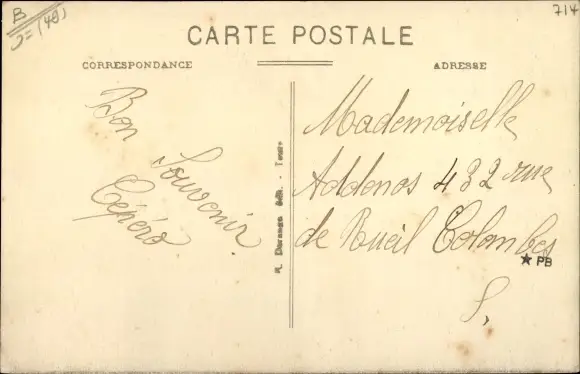 B
714
CARTE POSTALE
CORRESPONDANCE
ADRESSE
Bon
Souvenir
Cépéro
Mademoiselle
Addenos 432 rue
de Rueil Colombes
S.
Édit. - Tours
★ PB